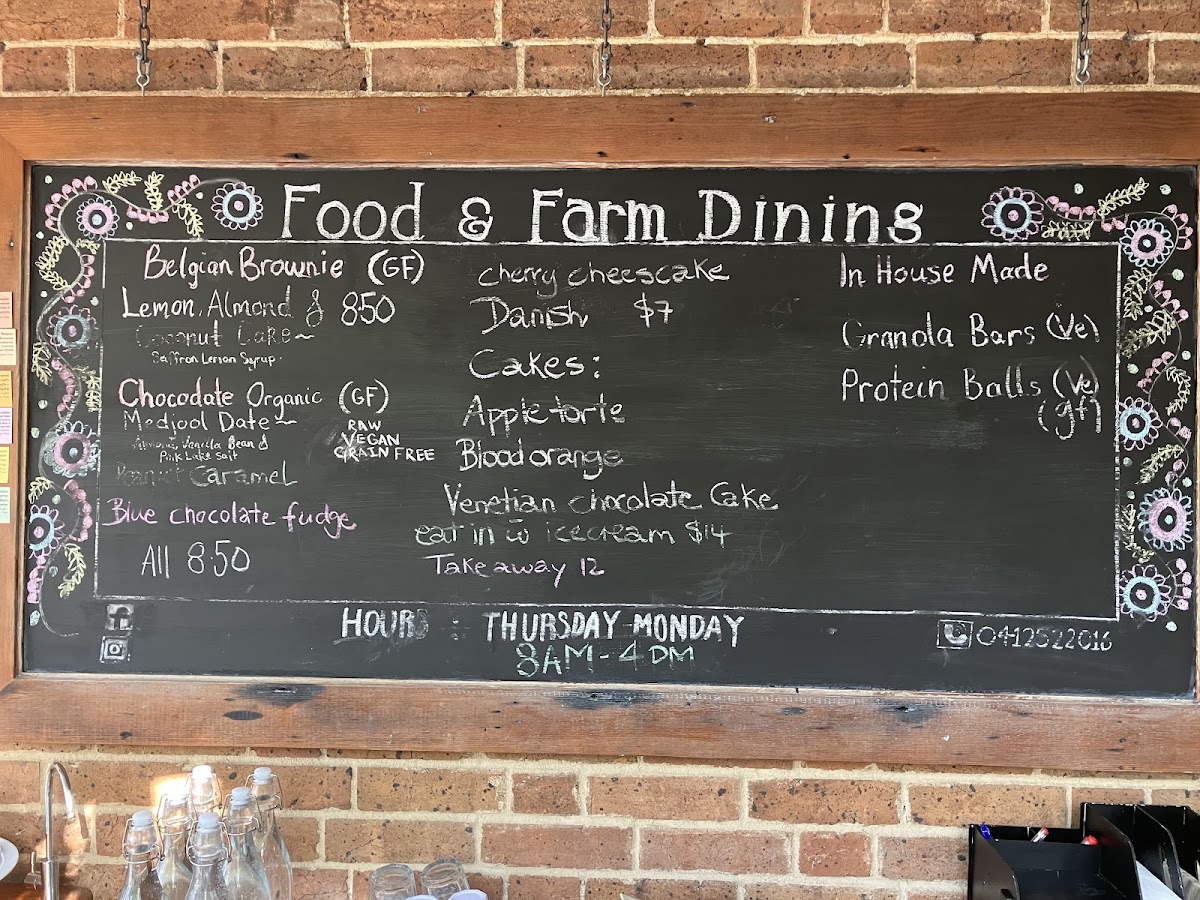 Food & Farm Dining
Belgian Brownie (GF)
Lemon, Almond & 8.50
Coconut Cake~
Saffron Lemon Syrup.
Chocodate Organic (GF)
Medjool Date~
Almonds, Vanilla Bean &
Pink Lake Salt
RAW
VEGAN
GRAIN FREE
Peanut Caramel
Blue chocolate fudge
All 8.50
cherry cheescake
Danish $7
Cakes:
Apple torte
Blood orange
Venetian chocolate Cake
eat in w̄ icecream $14
Takeaway 12
In House Made
Granola Bars (Ve)
Protein Balls (Ve)
(gf)
HOURS : THURSDAY-MONDAY
8AM-4PM
0412522016